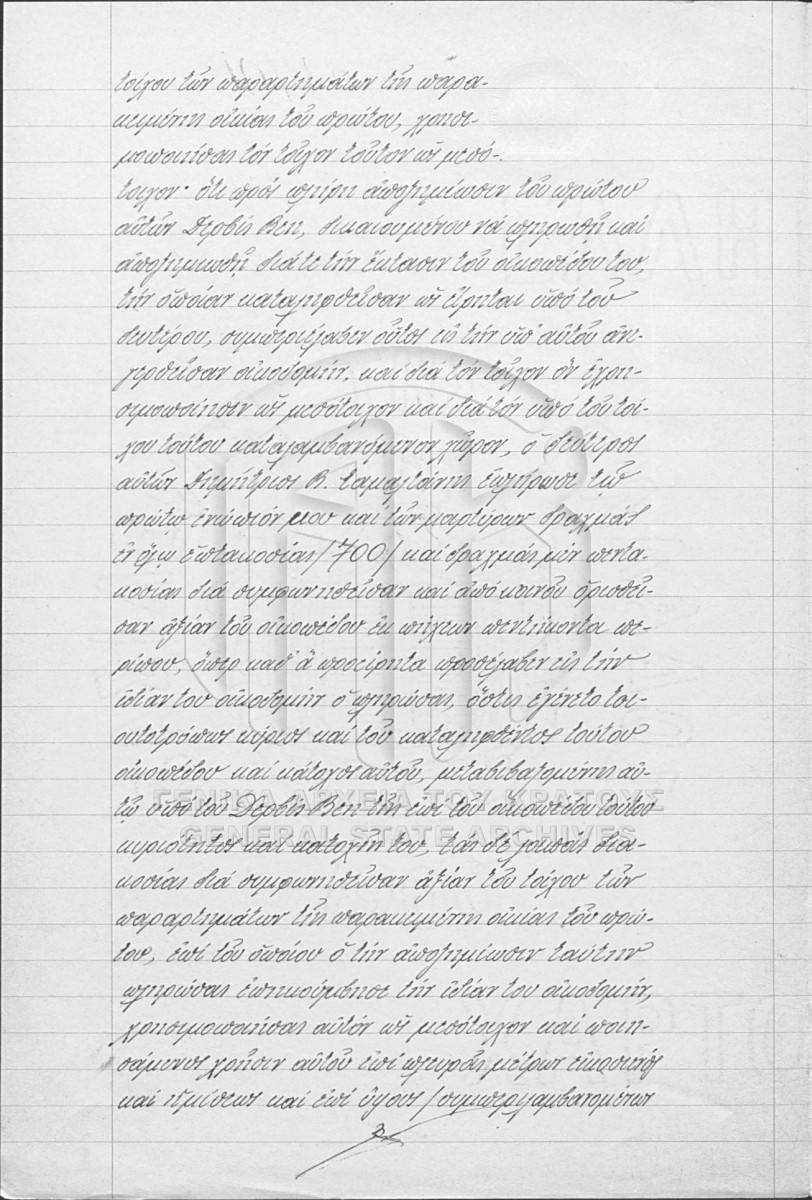 τοίχου τῶν παραρτημάτων τῆς παρα-
κειμένης οἰκίας τοῦ πρώτου, χρησι-
μοποιήσας τόν τοῖχον τοῦτον ὡς μεσό-
τοιχον· ὅτι πρός πλήρη ἀποζημίωσιν τοῦ πρώτου
αὐτῶν Δερβίς Βέη, δικαιουμένου νά πληρωθῇ καί
ἀποζημιωθῇ διά τε τήν ἔκτασιν τοῦ οἰκοπέδου του,
τήν ὁποίαν καταληφθεῖσαν ὡς εἴρηται ὑπό τοῦ
δευτέρου, συμπεριέλαβεν οὗτος εἰς τήν ὑπ' αὐτοῦ ἀνε-
γερθεῖσαν οἰκοδομήν, καί διά τόν τοῖχον ὅν ἐχρη-
σιμοποίησεν ὡς μεσότοιχον καί διά τόν ὑπό τοῦ τοί-
χου τούτου καταλαμβανόμενον χῶρον, ὁ δεύτερος
αὐτῶν Δημήτριος Β. Ταμαλτάνης ἐπλήρωσε τῷ
πρώτῳ ἐνώπιόν μου καί τῶν μαρτύρων δραχμάς
ἐν ὅλῳ ἑπτακοσίας /700/ καί δραχμάς μέν πεντα-
κοσίας διά συμφωνηθεῖσαν καί ἀπό κοινοῦ ὁρισθεῖ-
σαν ἀξίαν τοῦ οἰκοπέδου ἐκ πήχεων πεντήκοντα πε-
ρίπου, ὅπερ καθ' ἅ προείρηται προσέλαβεν εἰς τήν
ἰδίαν του οἰκοδομήν ὁ πληρώσας, ὅστις ἐγένετο τοι-
ουτοτρόπως κύριος καί τοῦ καταληφθέντος τούτου
οἰκοπέδου καί κάτοχος αὐτοῦ, μεταβιβαζομένης αὐ-
τῷ ὑπό τοῦ Δερβίς Βέη τῆς ἐπί τοῦ οἰκοπέδου τούτου
ΓΕΝΙΚΑ ΑΡΧΕΙΑ ΤΟΥ ΚΡΑΤΟΥΣ
GENERAL STATE ARCHIVES
κυριότητος καί κατοχῆς του, τάς δέ λοιπάς δια-
κοσίας διά συμφωνηθεῖσαν ἀξίαν τοῦ τοίχου τῶν
παραρτημάτων τῆς παρακειμένης οἰκίας τοῦ πρώ-
του, ἐπί τοῦ ὁποίου ὁ τήν ἀποζημίωσιν ταύτην
πληρώσας ἐπηκούμβησε τήν ἰδίαν του οἰκοδομήν,
χρησιμοποιήσας αὐτόν ὡς μεσότοιχον καί ποιη-
σάμενος χρῆσιν αὐτοῦ ἐπί πλευρᾶς μέτρων εἴκοσιν ἑνός
καί ἡμίσεως καί ἐπί ὕψους /συμπεριλαμβανομένων